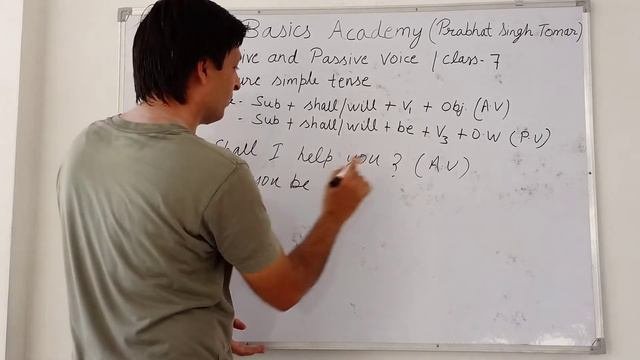 Basics Academy (Prabhat Singh Tomar)
ive and Passive Voice / Class-7
ure simple tense
- Sub + shall/will + V1 + Obj. (A.V)
- Sub + shall/will + be + V3 + O.W (P.V)
Shall I help you? (A.V)
you be